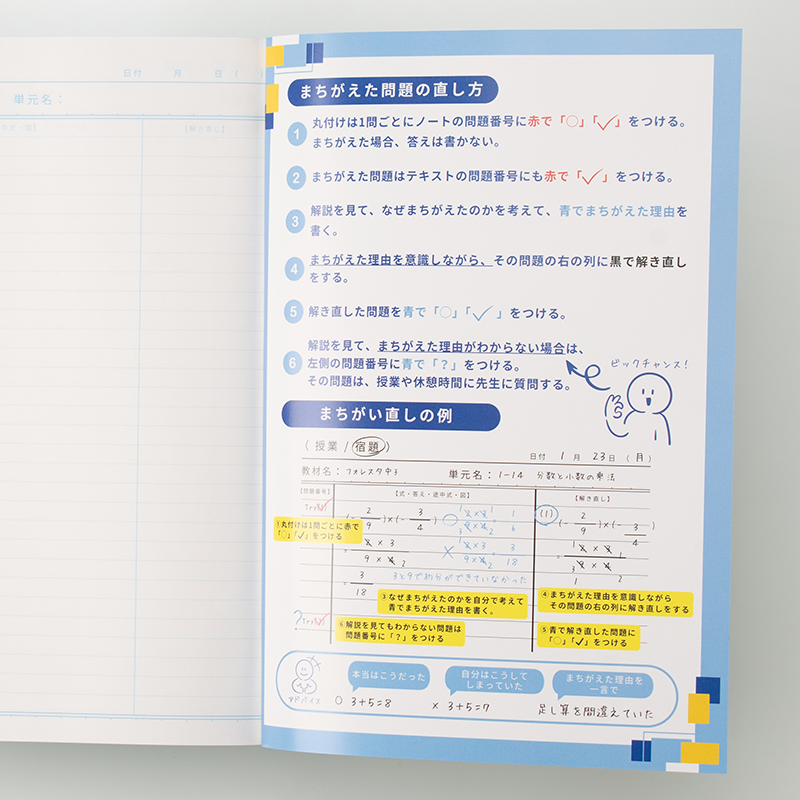 日付　月　日（　）
単元名：
【解き直し】
まちがえた問題の直し方
1 丸付けは1問ごとにノートの問題番号に赤で「○」「✓」をつける。
まちがえた場合、答えは書かない。
2 まちがえた問題はテキストの問題番号にも赤で「✓」をつける。
3 解説を見て、なぜまちがえたのかを考えて、青でまちがえた理由を
書く。
4 まちがえた理由を意識しながら、その問題の右の列に黒で解き直し
をする。
5 解き直した問題を青で「○」「✓」をつける。
6 解説を見て、まちがえた理由がわからない場合は、
左側の問題番号に青で「？」をつける。
その問題は、授業や休憩時間に先生に質問する。
ビックチャンス！
まちがい直しの例
（授業 / 宿題）
日付 1月 23日（月）
教材名：フォレスタ中1
単元名：1-14 分数と小数の乗法
【問題番号】【式・答え・途中式・図】【解き直し】
Try
(-2/9)×(-3/4)
(1) (-2/9)×(-3/4)
①丸付けは1問ごとに赤で
「○」「✓」をつける
= 2×3/9×4
= 3/18
3と9で約分ができていなかった
③なぜまちがえたのかを自分で考えて
青でまちがえた理由を書く。
④まちがえた理由を意識しながら
その問題の右の列に解き直しをする
? Try
⑥解説を見てもわからない問題は
問題番号に「？」をつける
⑤青で解き直した問題に
「○」「✓」をつける
アドバイス
本当はこうだった
○ 3+5=8
自分はこうして
しまっていた
× 3+5=7
まちがえた理由を
一言で
足し算を間違えていた